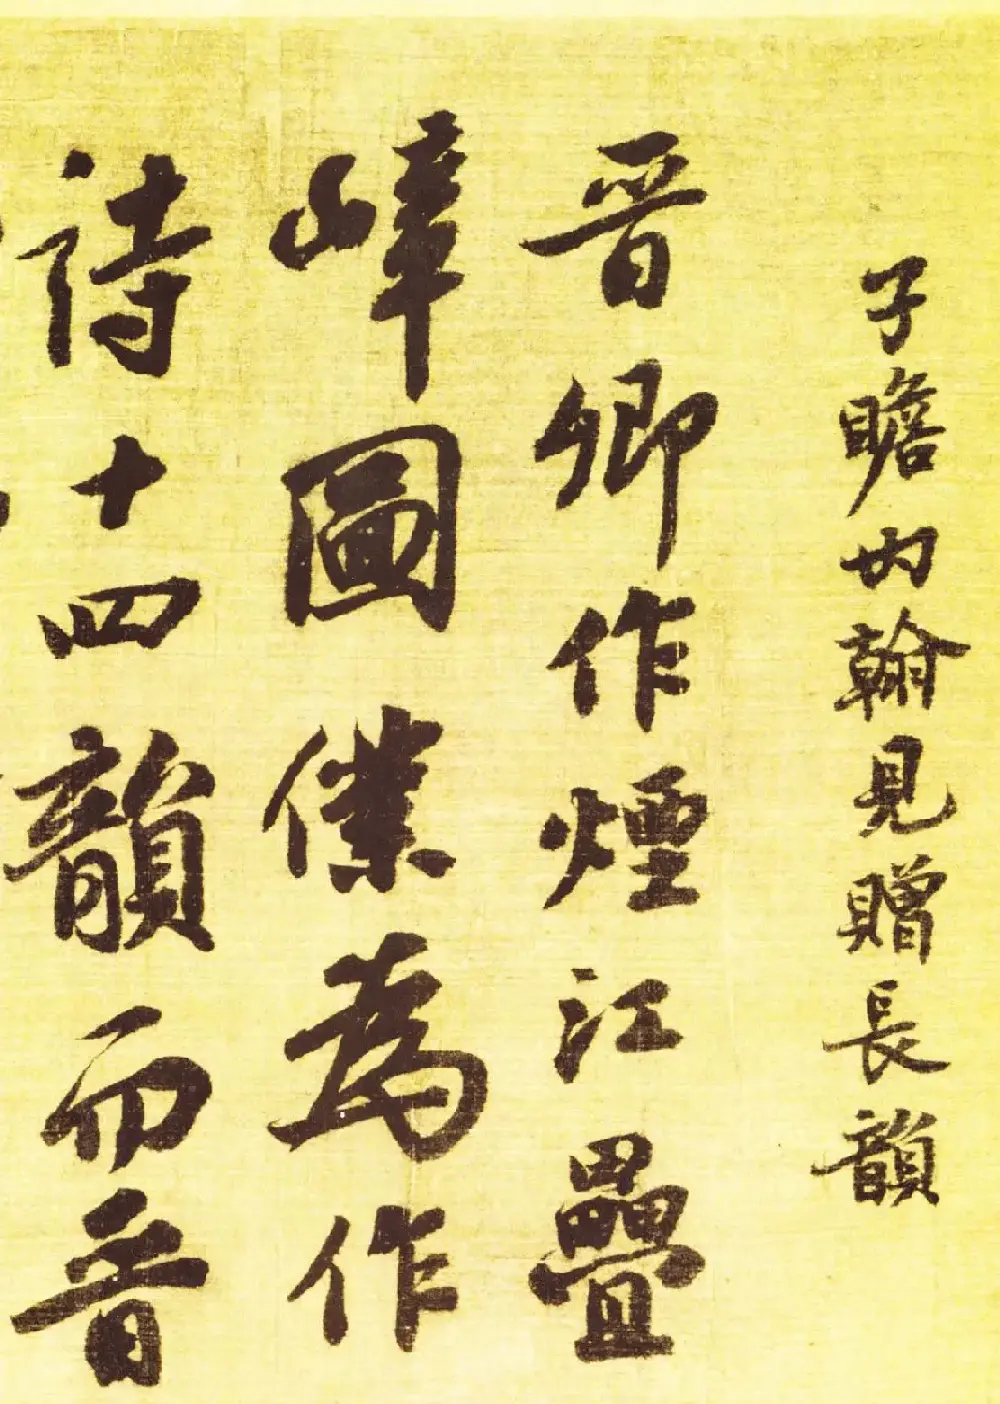 子瞻内翰見贈長韻
晉卿作煙江疊
嶂圖僕為作
詩十四韻而晉